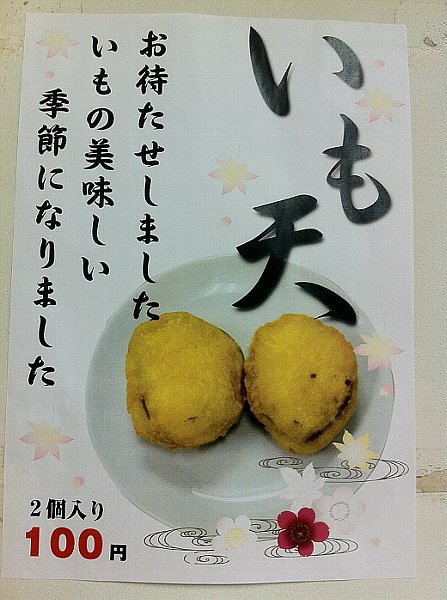 いも天
お待たせしました
いもの美味しい
季節になりました
2個入り
100円